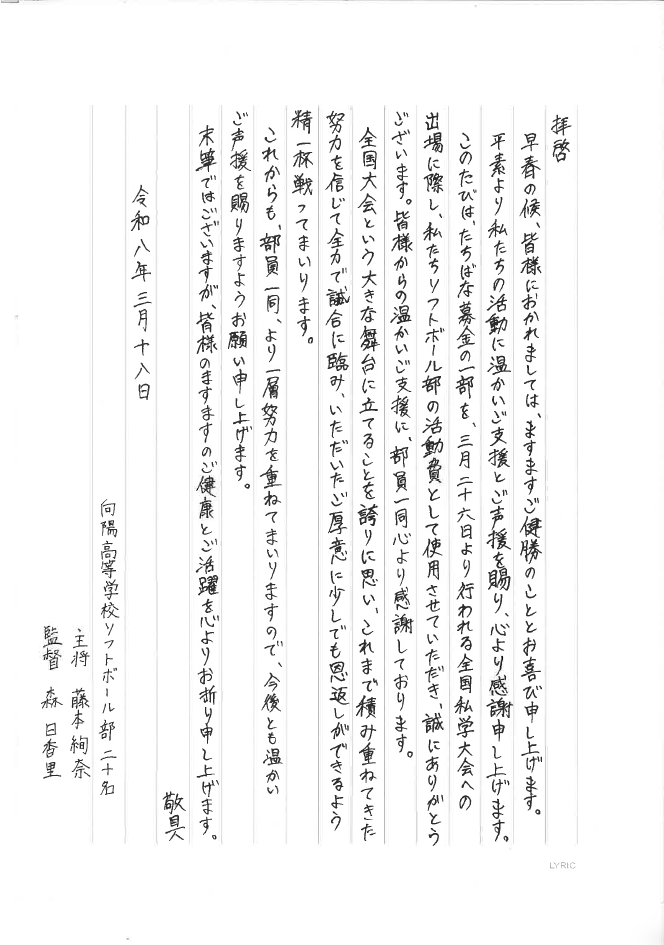 拝啓
早春の候、皆様におかれましては、ますますご健勝のこととお喜び申し上げます。
平素より私たちの活動に温かいご支援とご声援を賜り、心より感謝申し上げます。
このたびは、たちばな募金の一部を、三月二十六日より行われる全国私学大会への
出場に際し、私たちソフトボール部の活動費として使用させていただき、誠にありがとう
ございます。皆様からの温かいご支援に、部員一同心より感謝しております。
全国大会という大きな舞台に立てることを誇りに思い、これまで積み重ねてきた
努力を信じて全力で試合に臨み、いただいたご厚意に少しでも恩返しができるよう
精一杯戦ってまいります。
これからも、部員一同、より一層努力を重ねてまいりますので、今後とも温かい
ご声援を賜りますようお願い申し上げます。
末筆ではございますが、皆様のますますのご健康とご活躍を心よりお祈り申し上げます。
敬具
令和八年三月十八日
向陽高等学校ソフトボール部二十名
主将 藤本絢奈
監督 森日香里
LYRIC